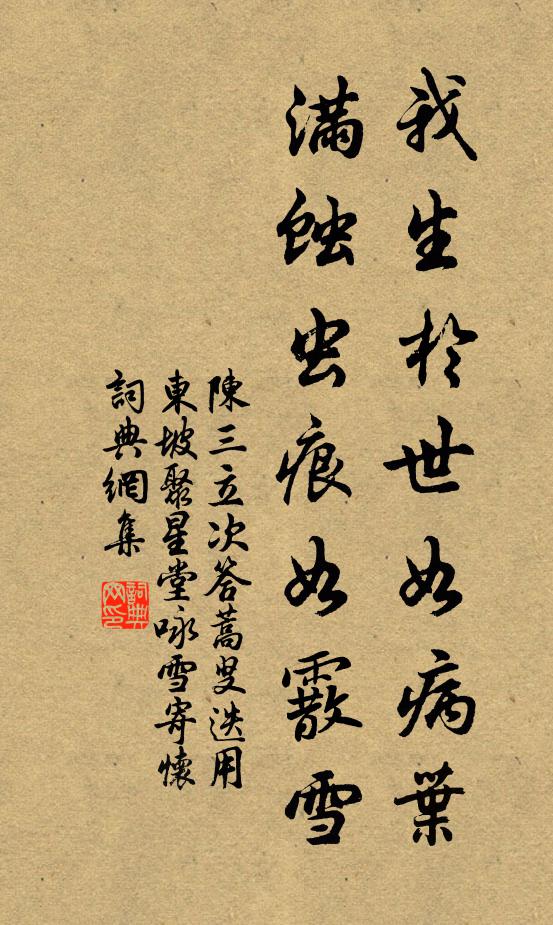 我生於世如病葉
滿蝕虫痕如霰雪
陳三立次答蒿叟迭用
東坡聚星堂咏雪寄懷
詞典網集
詞典网印